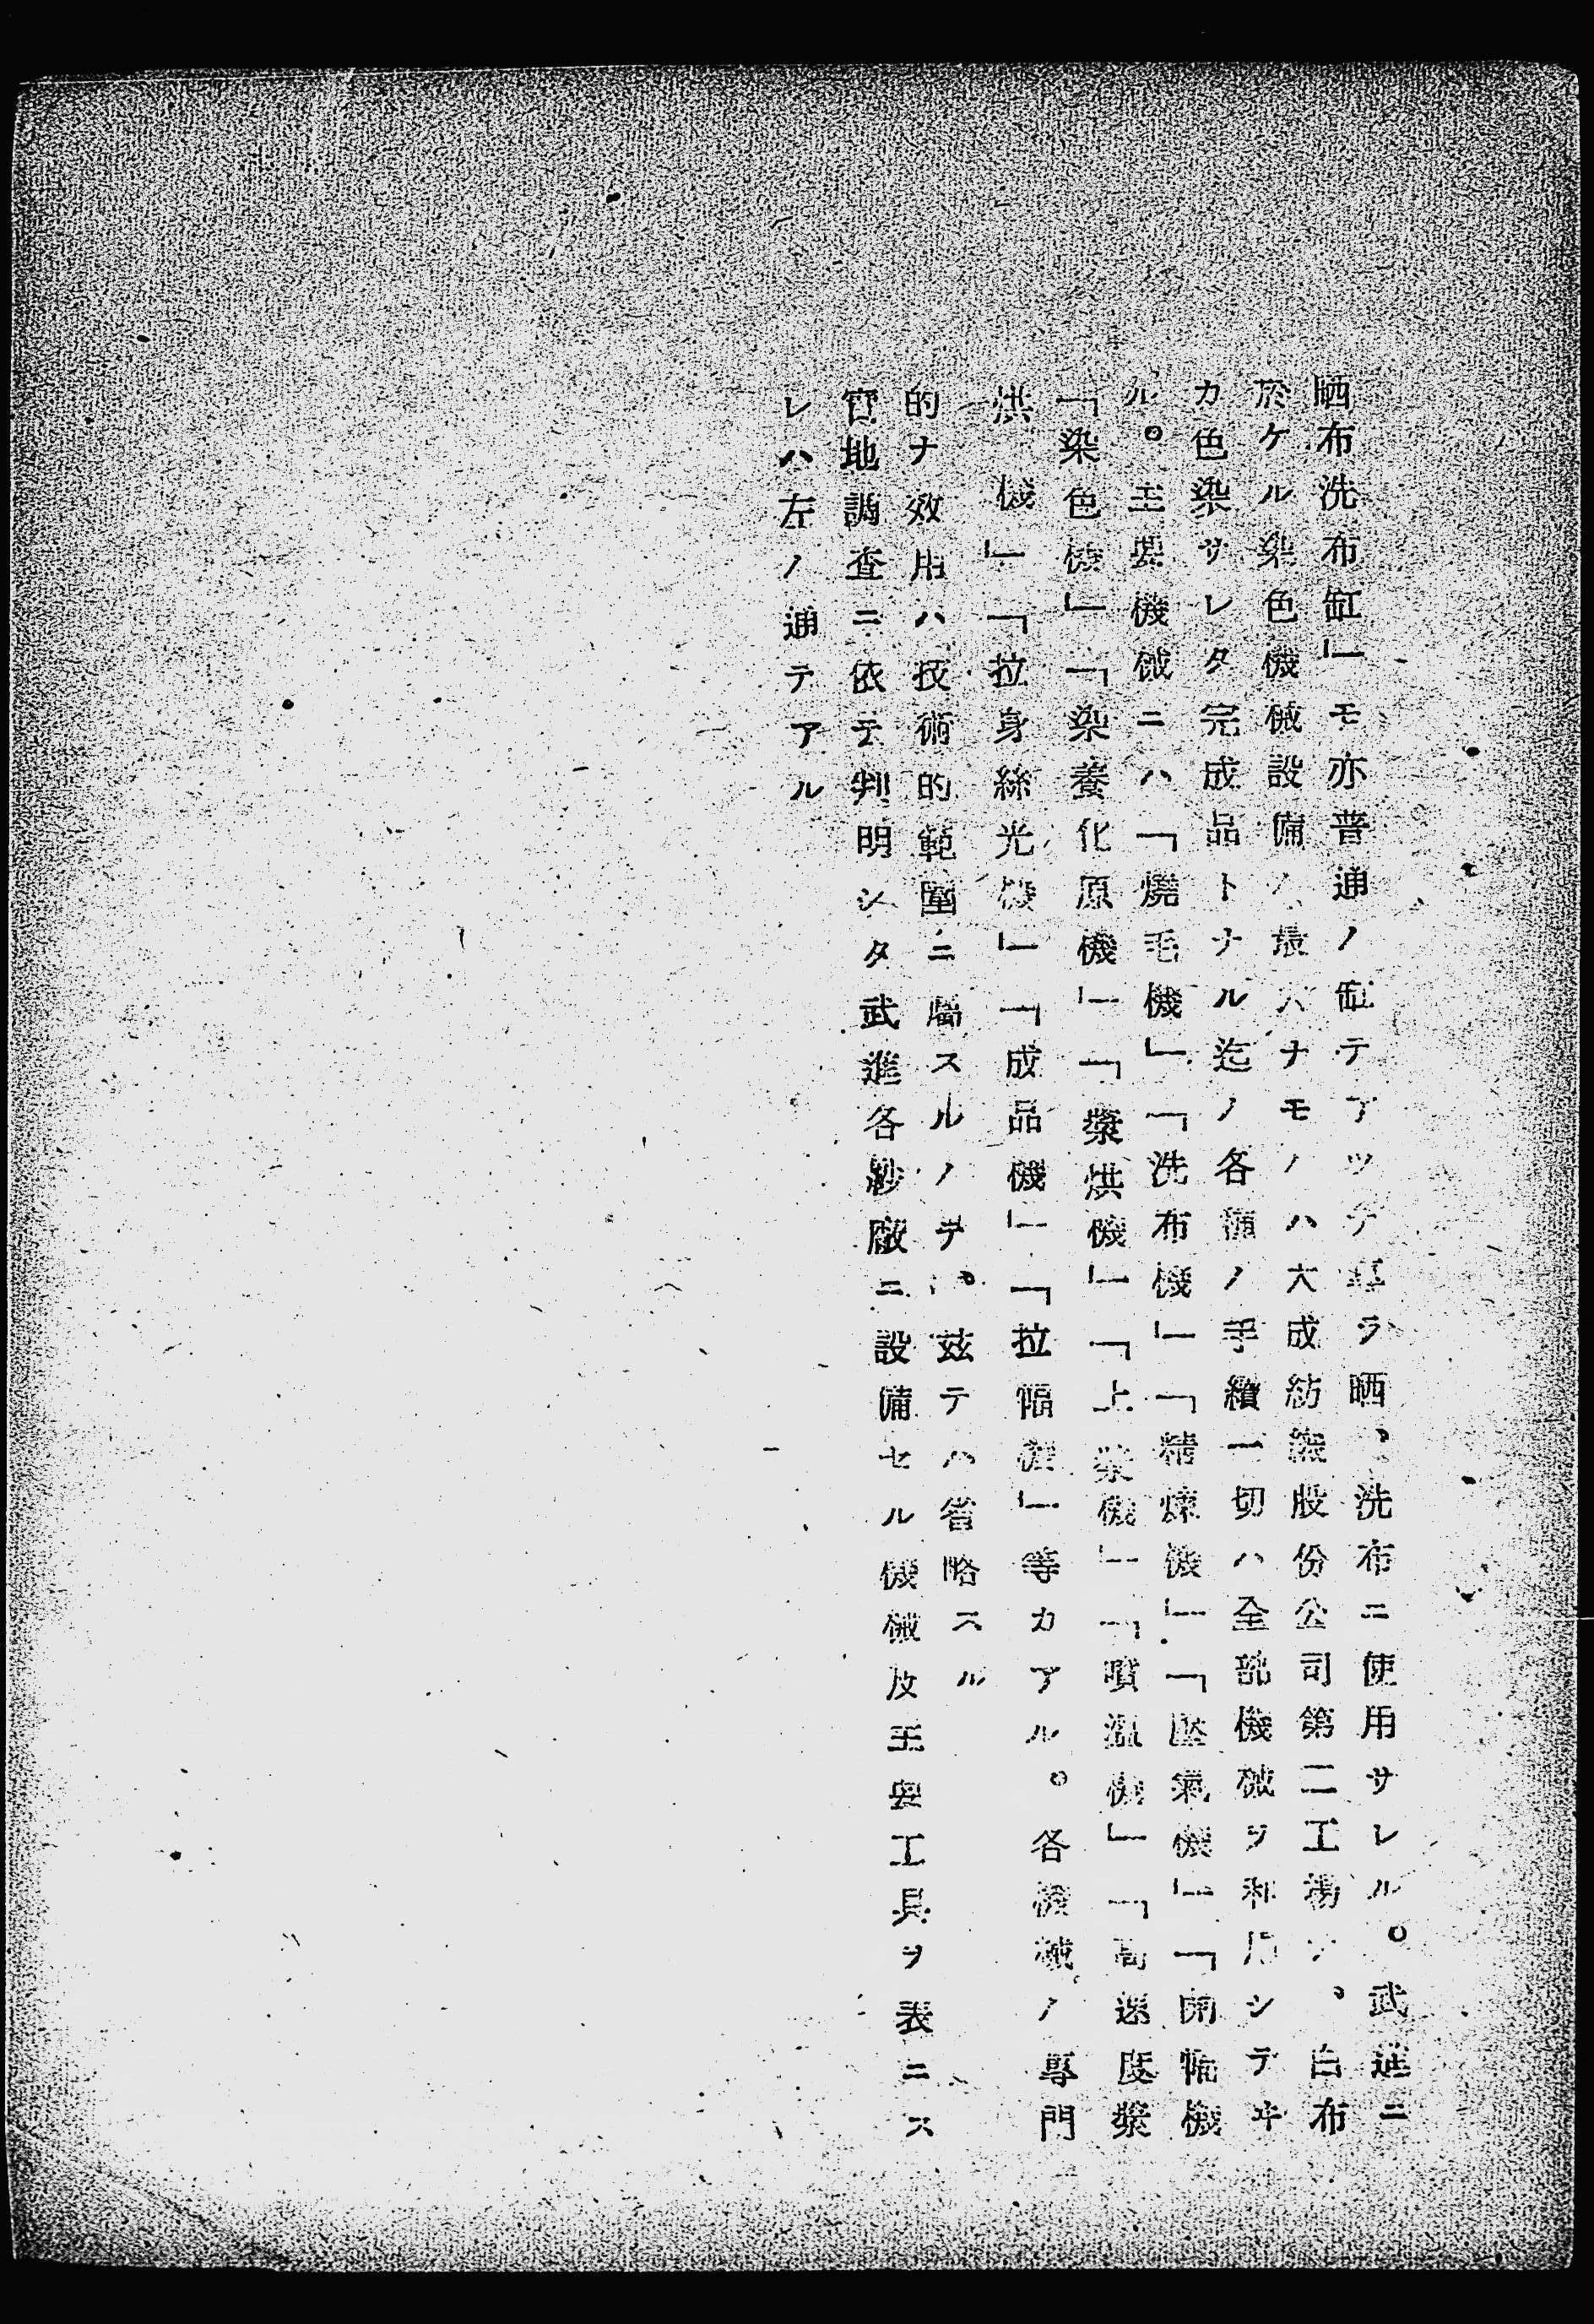 晒布洗布缸」モ亦普通ノ缸テアツテ専ラ晒、洗布ニ使用サレル。武進ニ
於ケル染色機械設備ノ最ハナモノハ大成紡織股份公司第二工場テ、白布
カ色染サレタ完成品トナル迄ノ各種ノ手續一切ハ全部機械ヲ利用シテヰ
ル。主要機械ニハ「燒毛機」「洗布機」「精煉機」「壓氣機」「開幅機
「染色機」「染養化原機」「漿烘機」「上漿機」「噴濕機」「高速度漿
洪機」「拉身絲光機」「成品機」「拉幅機」等カアル。各機械ノ專門
的ナ效用ハ技術的範圍ニ屬スルノデ。玆テハ省略スル
實地調査ニ依テ判明シタ武進各紗廠ニ設備セル機械及主要工具ヲ表ニス
レハ左ノ通テアル